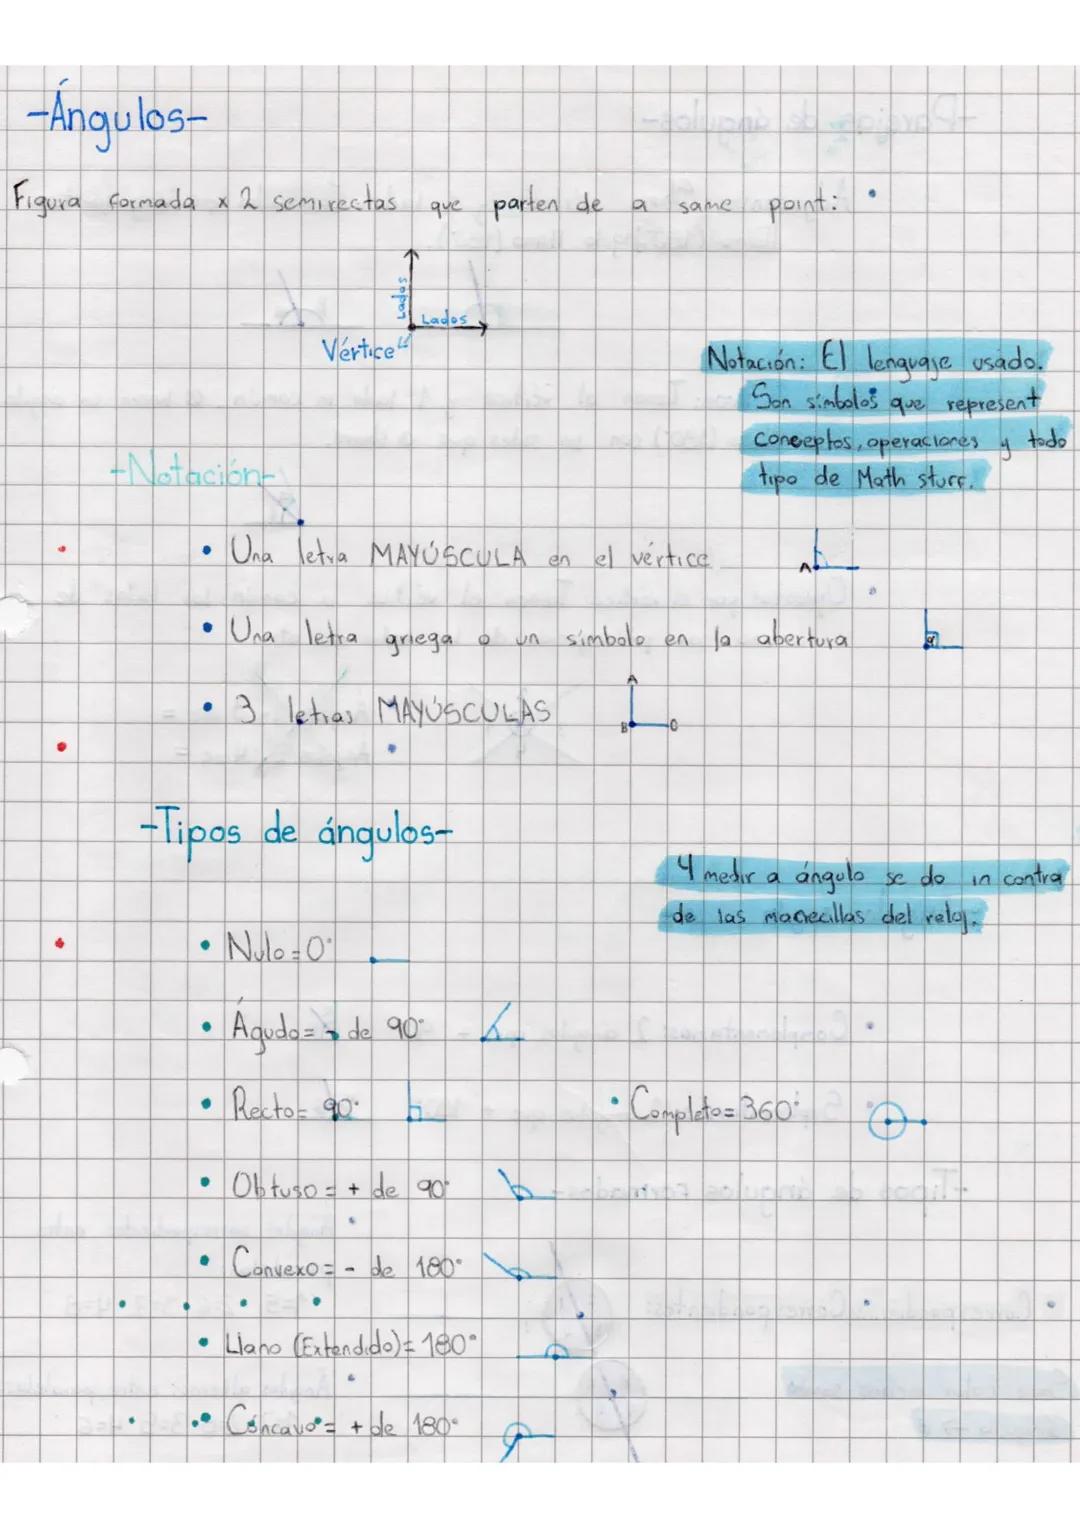 -Ángulos-
Figura formada x 2 semirectas que parten de a same point:
Lados
Lados
Vértice
Notación: El lenguaje usado.
Son símbolos que represent
conceptos, operaciones y todo
tipo de Math sturr.
-Notación-
• Una letra MAYÚSCULA en el vértice
A
• Una letra griega o un símbolo en la abertura
• 3 letras MAYÚSCULAS
A
B
C
-Tipos de ángulos-
4 medir a ángulo se do in contra
de las manecillas del reloj.
• Nulo = 0°
• Águdo = - de 90°
• Recto = 90°
• Completo = 360°
• Obtuso = + de 90°
• Convexo = - de 180°
• Llano (Extendido) = 180°
• Cóncavo = + de 180°